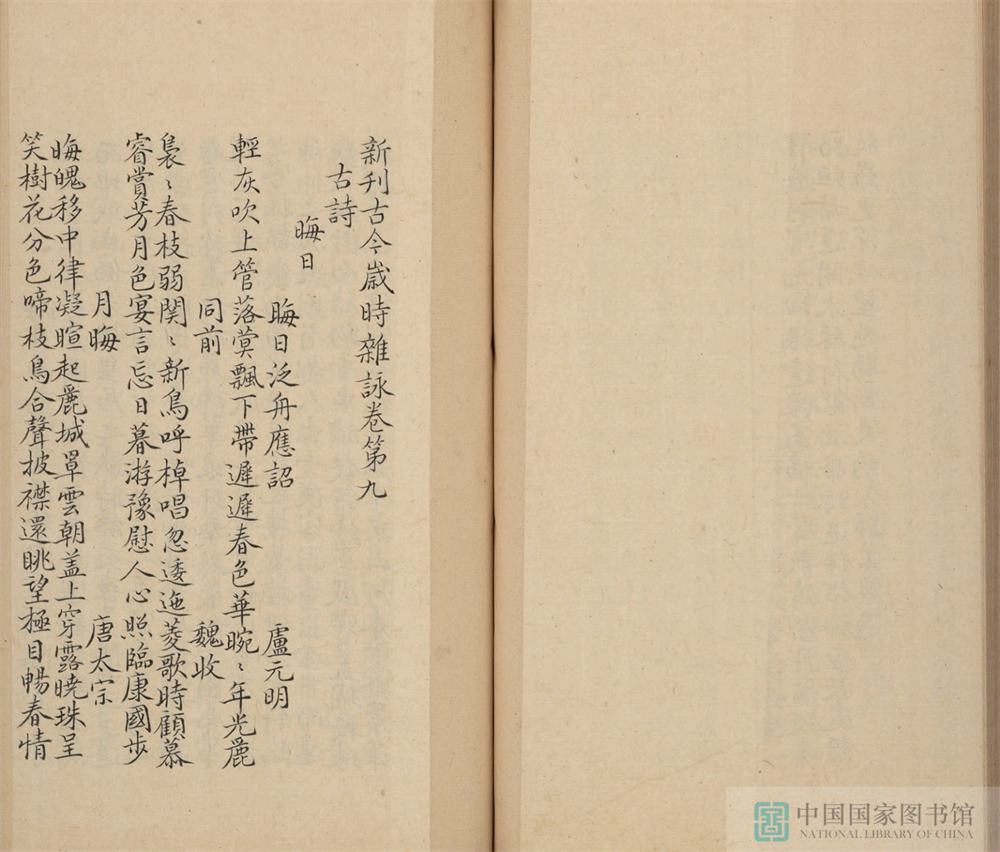 新刊古今歳時雜詠卷第九
古詩
晦日
晦日泛舟應詔 盧元明
輕灰吹上管落蓂飄下帶遲遲春色華晼〻年光麗
同前 魏收
裊〻春枝弱関〻新鳥呼棹唱忽逶迤菱歌時顧慕
睿賞芳月色宴言忘日暮游豫慰人心照臨康國步
月晦 唐太宗
晦魄移中律凝暄起麗城罩雲朝盖上穿露曉珠呈
笑樹花分色啼枝鳥合聲披襟還眺望極目暢春情
中国国家图书馆
NATIONAL LIBRARY OF CHINA